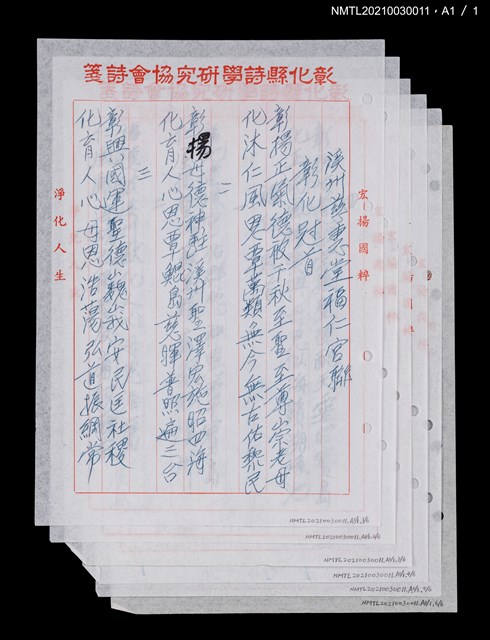 NMTL20210030011，A1 / 1
箋詩會協究研學詩縣化彰
宏揚國粹
溪州慈惠堂福仁宮聯
彰化冠首
彰揚正氣德被千秋至聖至尊崇老母
化沐仁風恩覃萬類無今無古佑黎民
二
彰揚母德神駐溪州聖澤宏施昭四海
化育人心恩覃鯤島慈暉普照遍三台
三
彰興國運聖德巍峩安民匡社稷
化育人心母恩浩蕩弘道振綱常
淨化人生
NMTL20210030011,A1/1,1/6
NMTL20210030011,A1/1,2/6
NMTL20210030011,A1/1,3/6
NMTL20210030011,A1/1,4/6
NMTL20210030011,A1/1,5/6
NMTL20210030011,A1/1,6/6